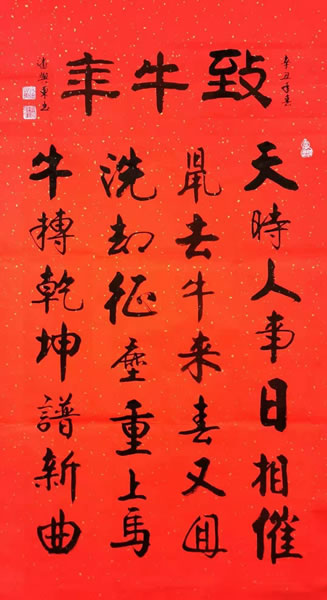 致牛年
辛丑年
天時人事日相催
鼠去牛来春又回
洗却征塵重上馬
牛轉乾坤譜新曲